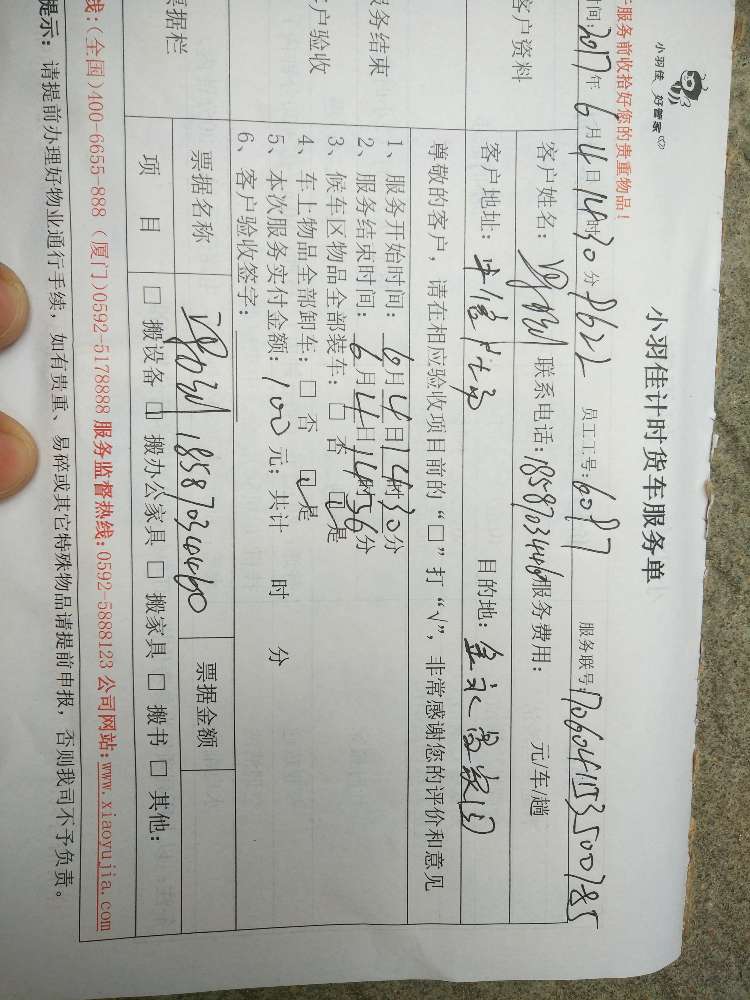 小羽佳 好管家
小羽佳计时货车服务单
服务前收拾好您的贵重物品！
时间：2017年6月4日14时30分 8622 员工工号：6087 服务联号：
客户资料
客户姓名： 联系电话： 服务费用： 元/车/趟
客户地址：中信 目的地：
尊敬的客户，请在相应验收项目前的“□”打“√”，非常感谢您的评价和意见
务结束
户验收
1、服务开始时间：6月4日14时30分
2、服务结束时间：6月4日14时56分
3、候车区物品全部装车：□ 否 ☑是
4、车上物品全部卸车：□ 否 ☑是
5、本次服务实付金额：100元；共计 时 分
6、客户验收签字：
票据栏
票据名称 18587034460 票据金额
项 目 □ 搬设备 □ 搬办公家具 □ 搬家具 □ 搬书 □ 其他：
线：（全国）400-6655-888（厦门）0592-5178888 服务监督热线：0592-5888123 公司网站：www.xiaoyujia.com
提示：请提前办理好物业通行手续，如有贵重、易碎或其它特殊物品请提前申报，否则我司不予负责。